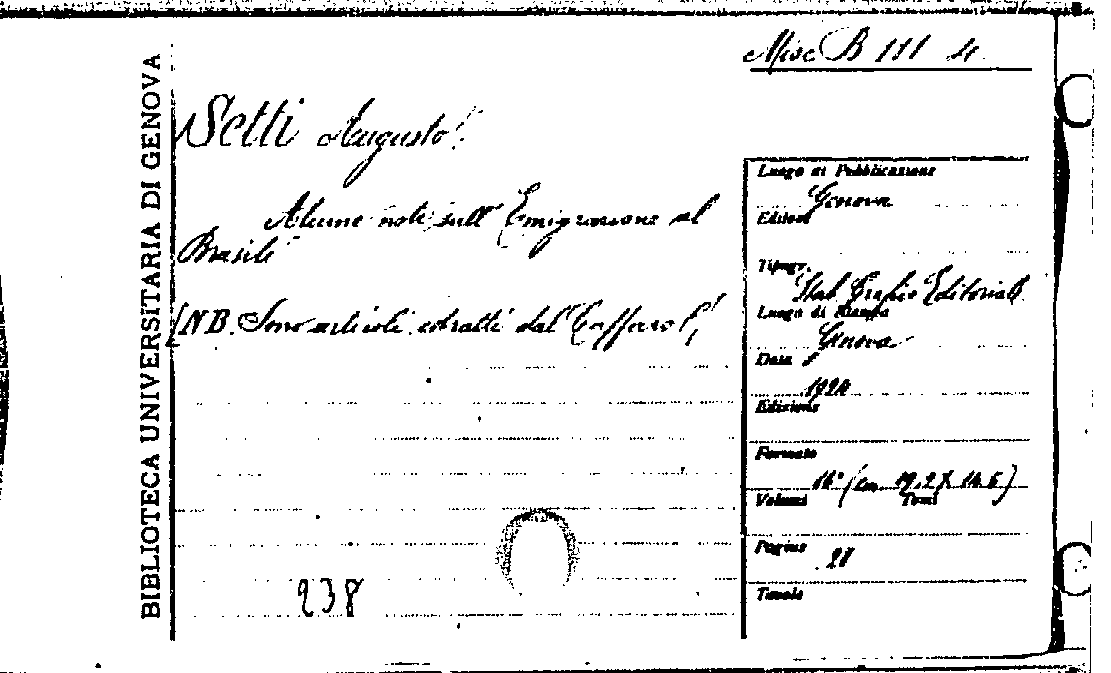 BIBLIOTECA UNIVERSITARIA DI GENOVA
Misc B 111 4
Setti Augusto
Alcune note sull' Emigrazione al
Brasile
[NB. Sono articoli estratti dal Caffaro]
238
Luogo di Pubblicazione
Genova
Editore
Tipogr.
Stab. Grafico Editoriale
Luogo di Stampa
Genova
Data
1924
Edizione
Formato
16° (cm 19,2 X 14.5)
Volumi Tomi
Pagine
28
Tavole